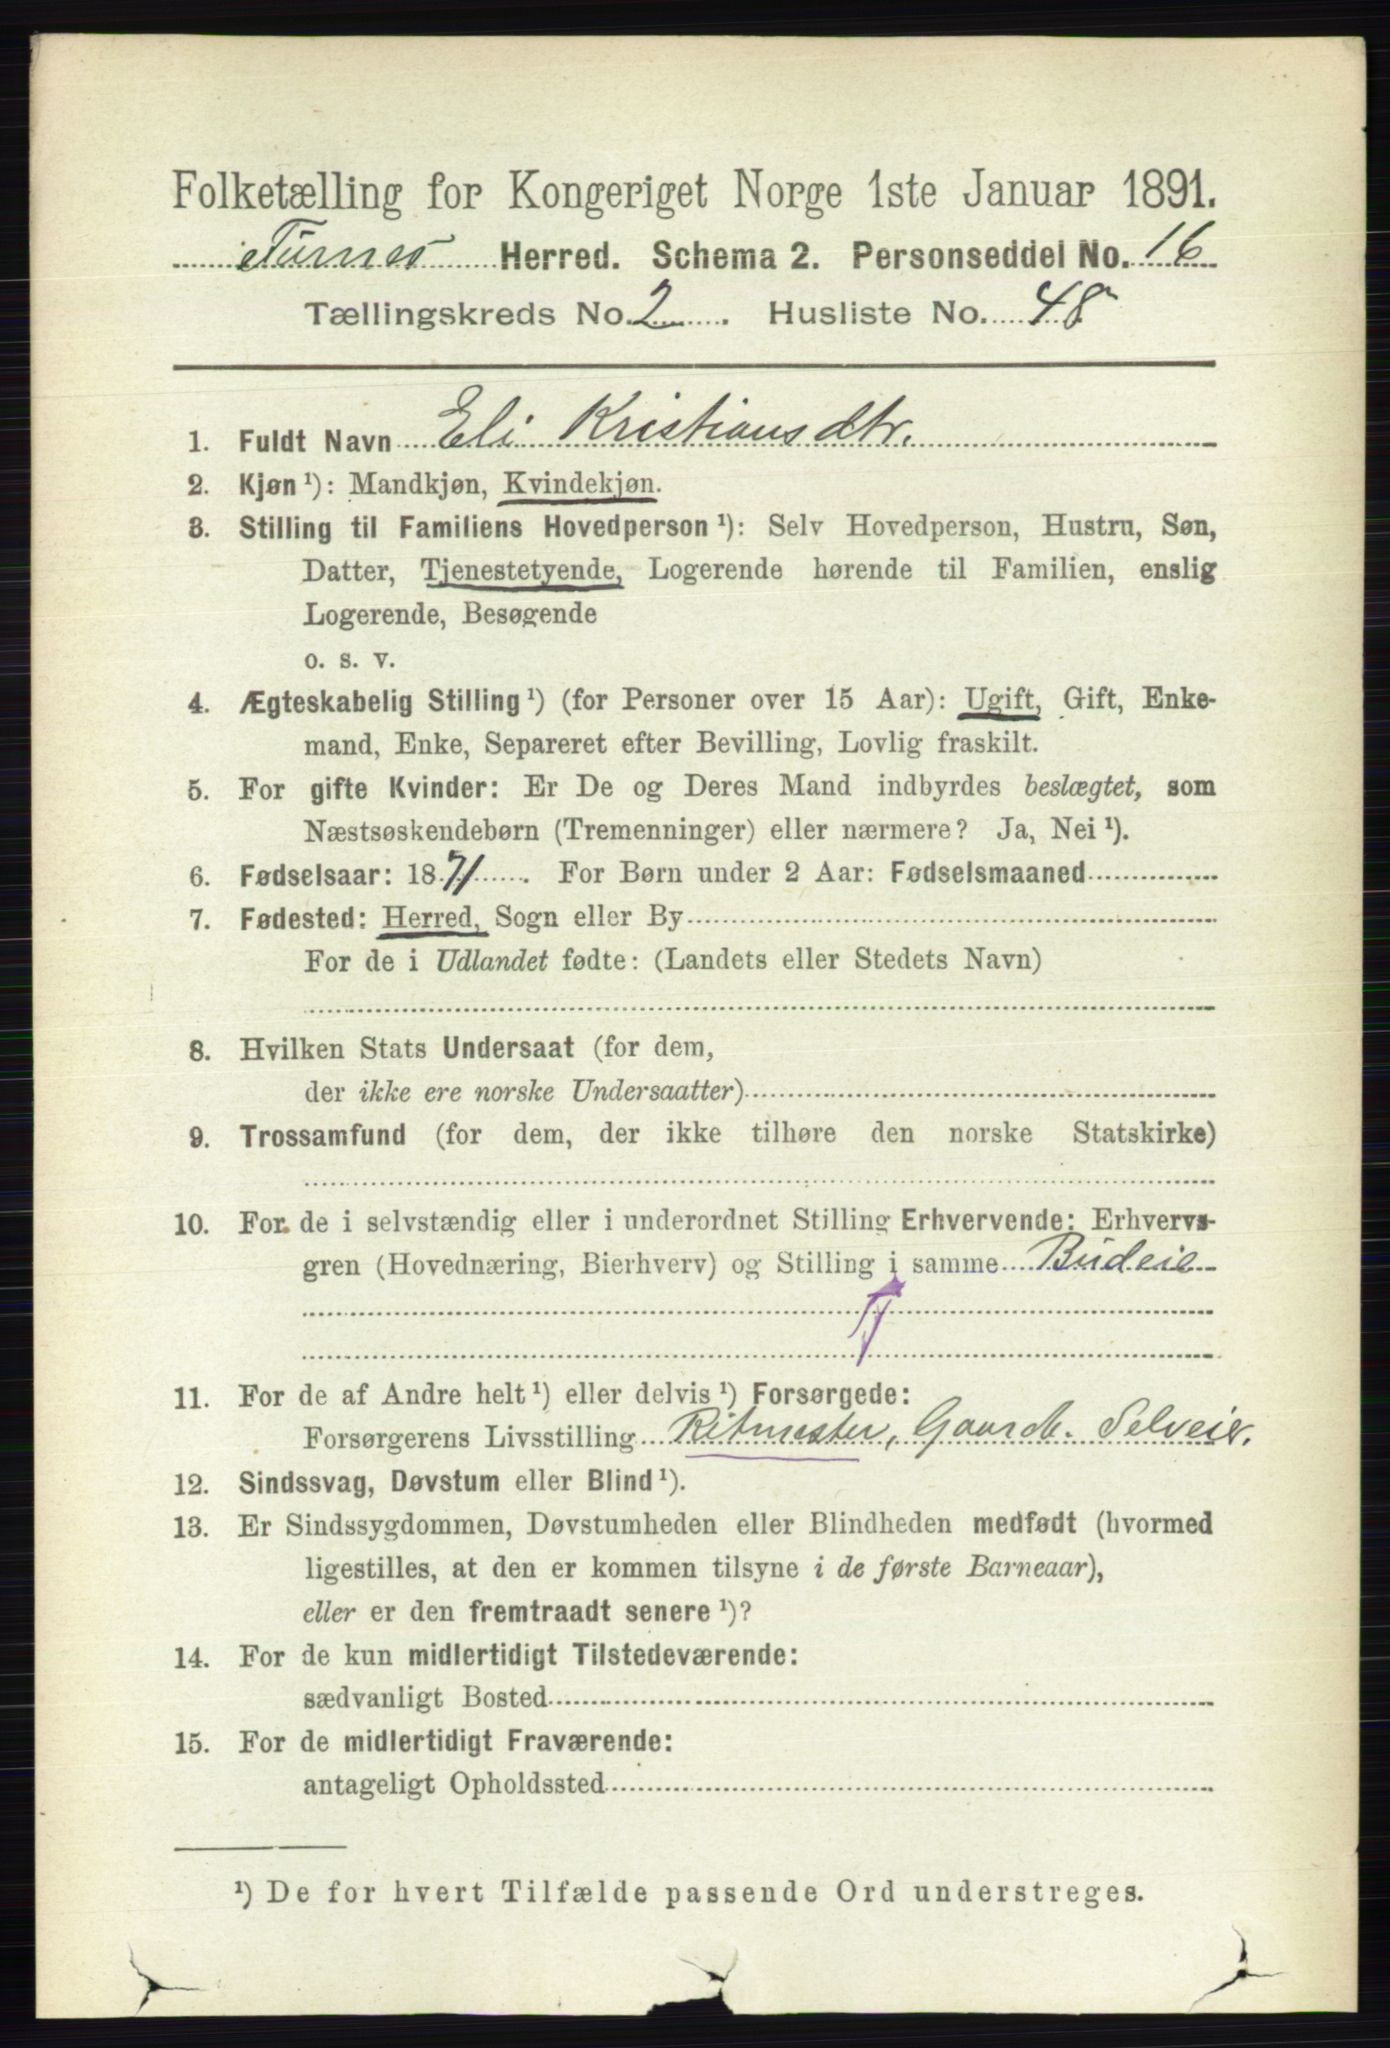 Folketælling for Kongeriget Norge 1ste Januar 1891.
Furnes Herred. Schema 2. Personseddel No. 16
Tællingskreds No. 2. Husliste No. 48
1. Fuldt Navn Eli Kristiansdtr.
2. Kjøn ¹): Mandkjøn, Kvindekjøn.
3. Stilling til Familiens Hovedperson ¹): Selv Hovedperson, Hustru, Søn,
Datter, Tjenestetyende, Logerende hørende til Familien, enslig
Logerende, Besøgende
o. s. v.
4. Ægteskabelig Stilling ¹) (for Personer over 15 Aar): Ugift, Gift, Enke-
mand, Enke, Separeret efter Bevilling, Lovlig fraskilt.
5. For gifte Kvinder: Er De og Deres Mand indbyrdes beslægtet, som
Næstsøskendebørn (Tremenninger) eller nærmere? Ja, Nei ¹).
6. Fødselsaar: 1871. For Børn under 2 Aar: Fødselsmaaned
7. Fødested: Herred, Sogn eller By
For de i Udlandet fødte: (Landets eller Stedets Navn)
8. Hvilken Stats Undersaat (for dem,
der ikke ere norske Undersaatter)
9. Trossamfund (for dem, der ikke tilhøre den norske Statskirke)
10. For de i selvstændig eller i underordnet Stilling Erhvervende: Erhvervs-
gren (Hovednæring, Bierhverv) og Stilling i samme Budeie
11. For de af Andre helt ¹) eller delvis ¹) Forsørgede:
Forsørgerens Livsstilling Ritmester, Gaardb. Selveier.
12. Sindssvag, Døvstum eller Blind ¹).
13. Er Sindssygdommen, Døvstumheden eller Blindheden medfødt (hvormed
ligestilles, at den er kommen tilsyne i de første Barneaar),
eller er den fremtraadt senere ¹)?
14. For de kun midlertidigt Tilstedeværende:
sædvanligt Bosted
15. For de midlertidigt Fraværende:
antageligt Opholdssted
¹) De for hvert Tilfælde passende Ord understreges.